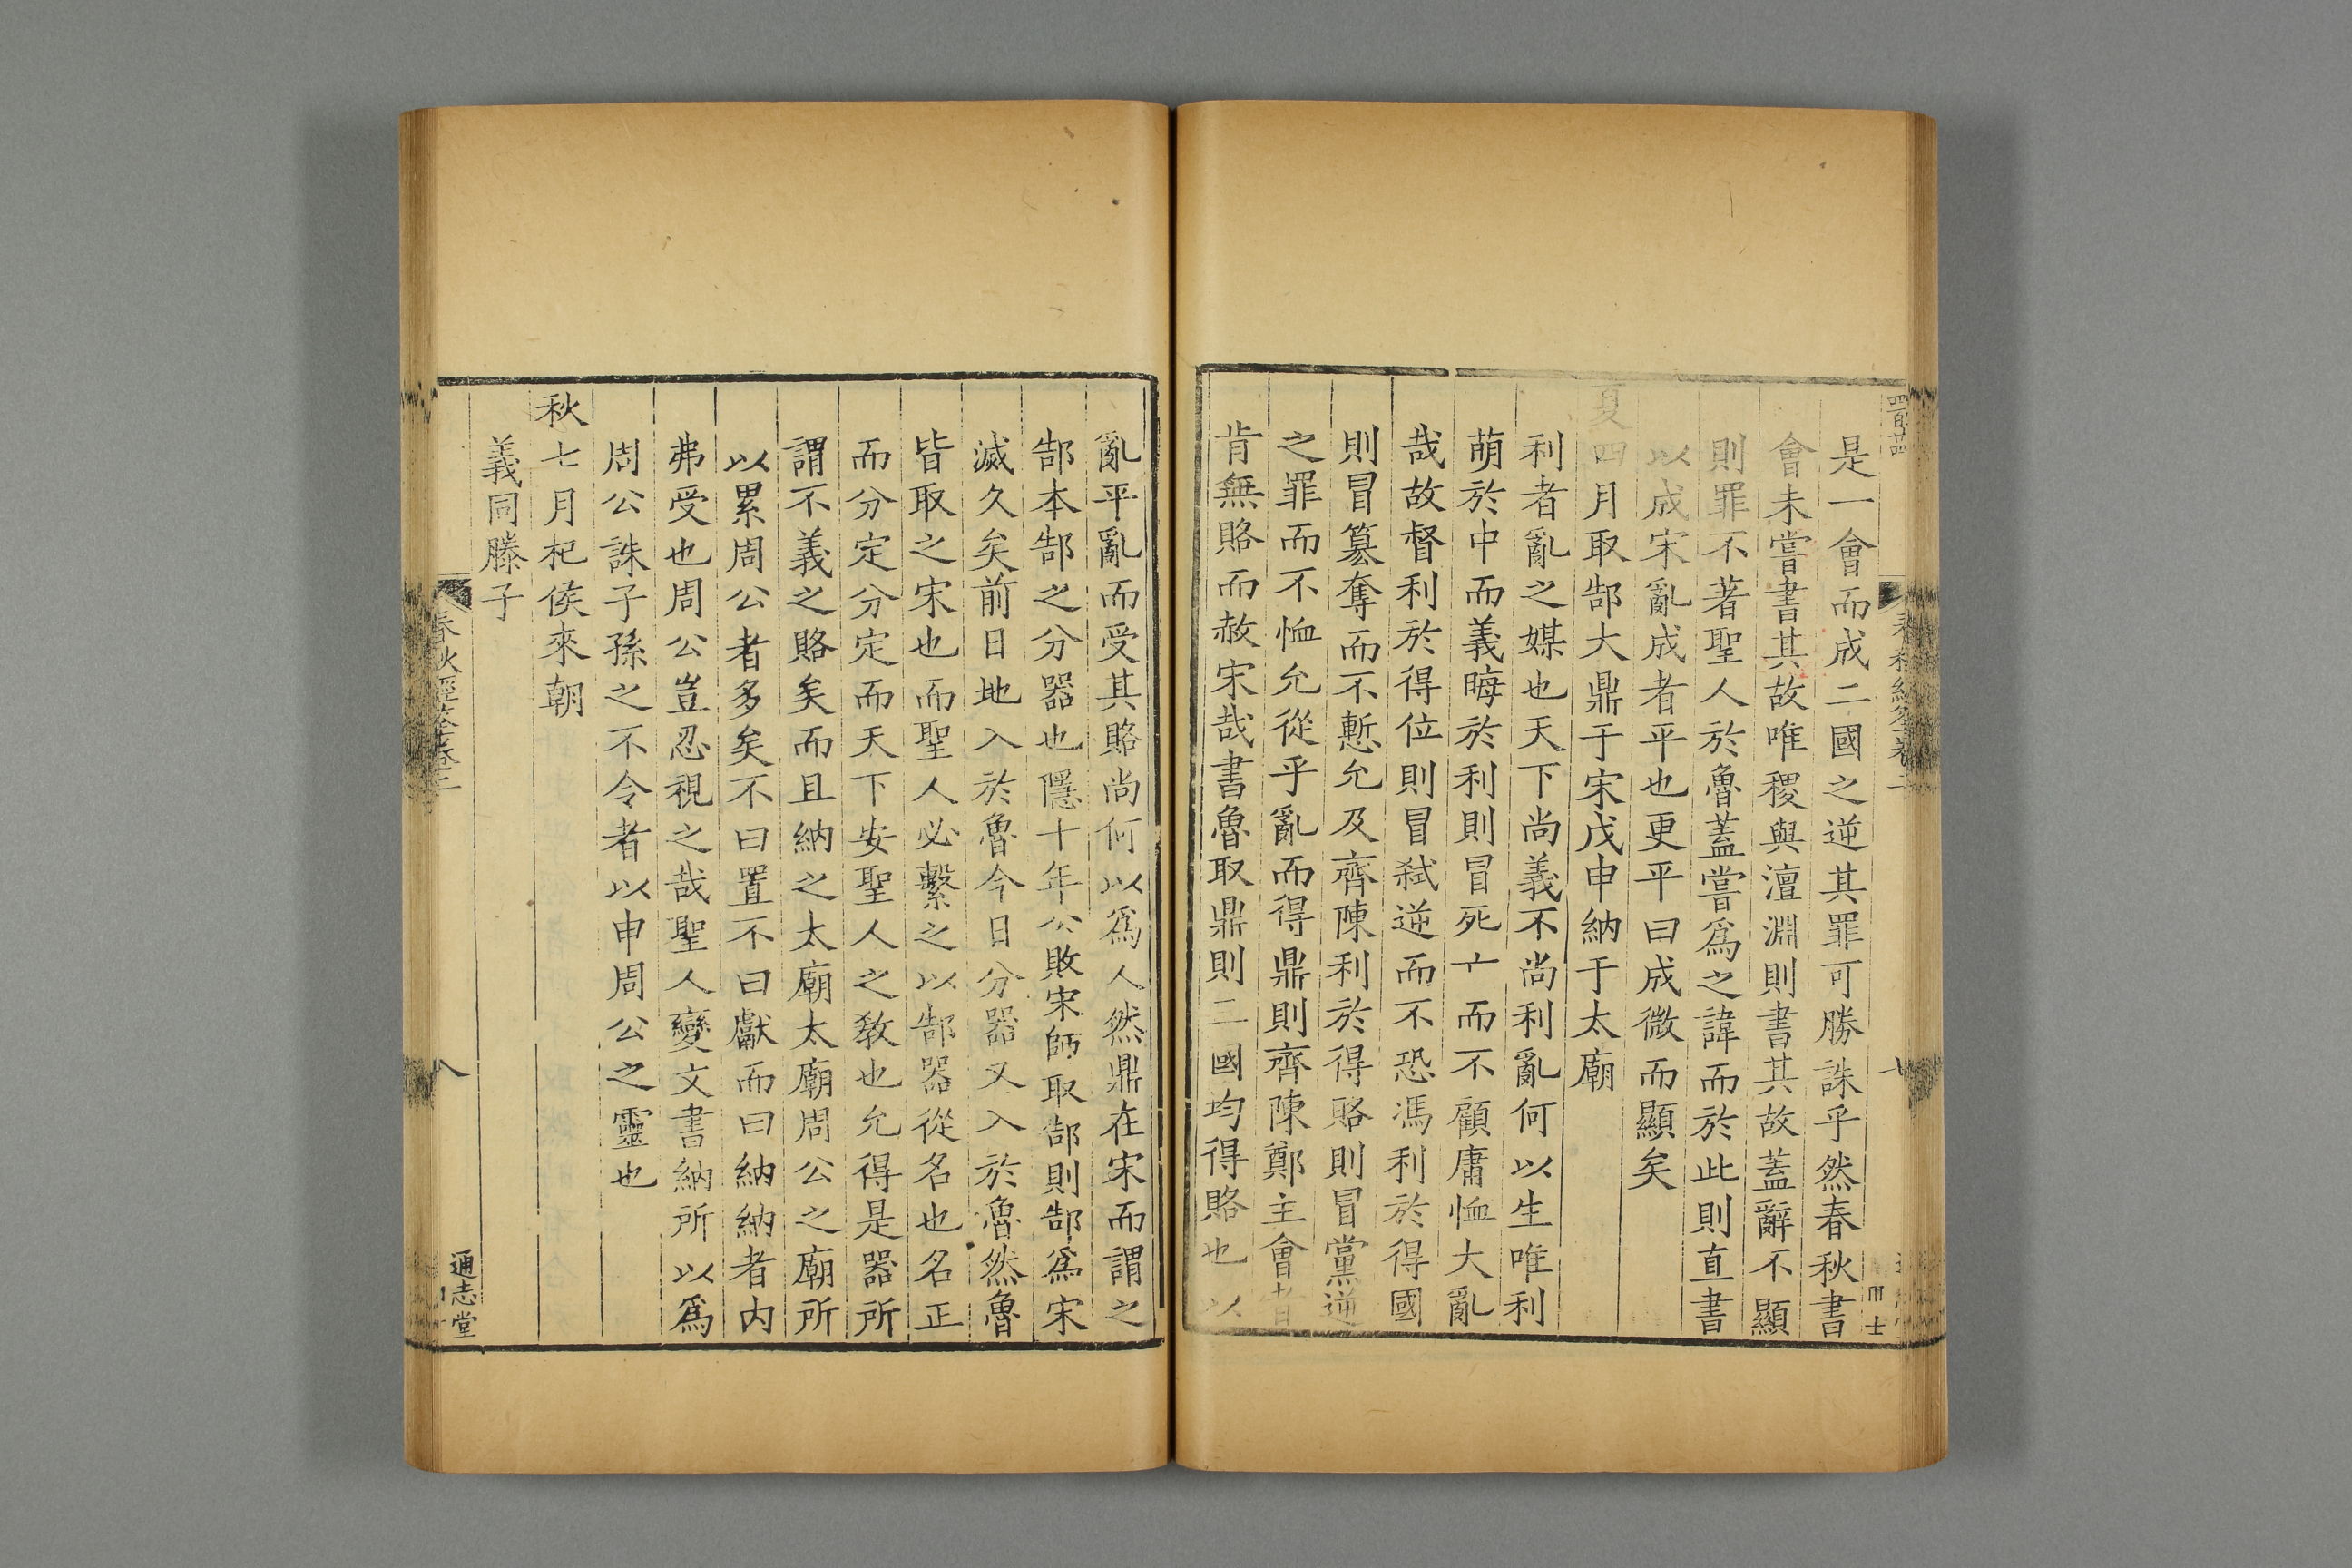 四百廿四
是一會而成二國之逆其罪可勝誅乎然春秋書
會未嘗書其故唯稷與澶淵則書其故蓋辭不顯
則罪不著聖人於魯蓋嘗爲之諱而於此則直書
以成宋亂成者平也更平曰成微而顯矣
夏四月取郜大鼎于宋戊申納于太廟
利者亂之媒也天下尚義不尚利亂何以生唯利
萌於中而義晦於利則冒死亡而不顧庸恤大亂
哉故督利於得位則冒弑逆而不恐馮利於得國
則冒簒奪而不慙允及齊陳利於得賂則冒黨逆
之罪而不恤允從乎亂而得鼎則齊陳鄭主會者
肯無賂而赦宋哉書魯取鼎則二國均得賂也以
亂平亂而受其賂尚何以爲人然鼎在宋而謂之
郜本郜之分器也隱十年公敗宋師取郜則郜爲宋
滅久矣前日地入於魯今日分器又入於魯然魯
皆取之宋也而聖人必繫之以郜器從名也名正
而分定分定而天下安聖人之教也允得是器所
謂不義之賂矣而且納之太廟太廟周公之廟所
以累周公者多矣不曰置不曰獻而曰納納者内
弗受也周公豈忍視之哉聖人變文書納所以爲
周公誅子孫之不令者以申周公之靈也
秋七月杞侯來朝
義同滕子
春秋經筌卷二
八
通志堂